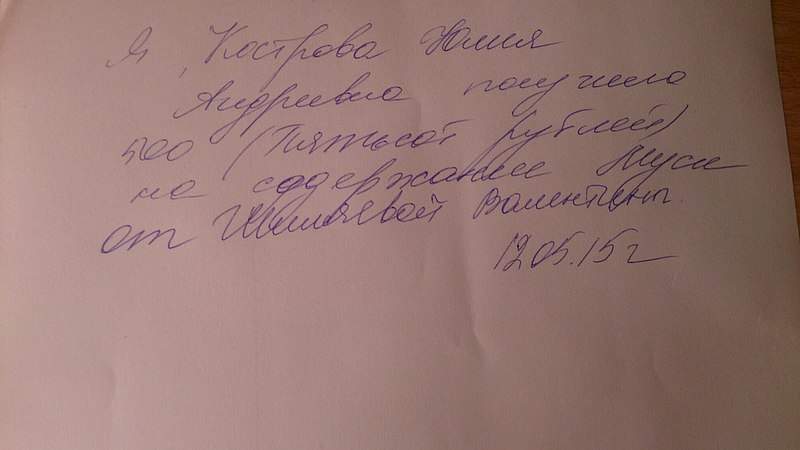 Я, Кострова Юлия
Андреевна получила
500 (Пятьсот рублей)
на содержание Муси
от Валентины
12.05.15г